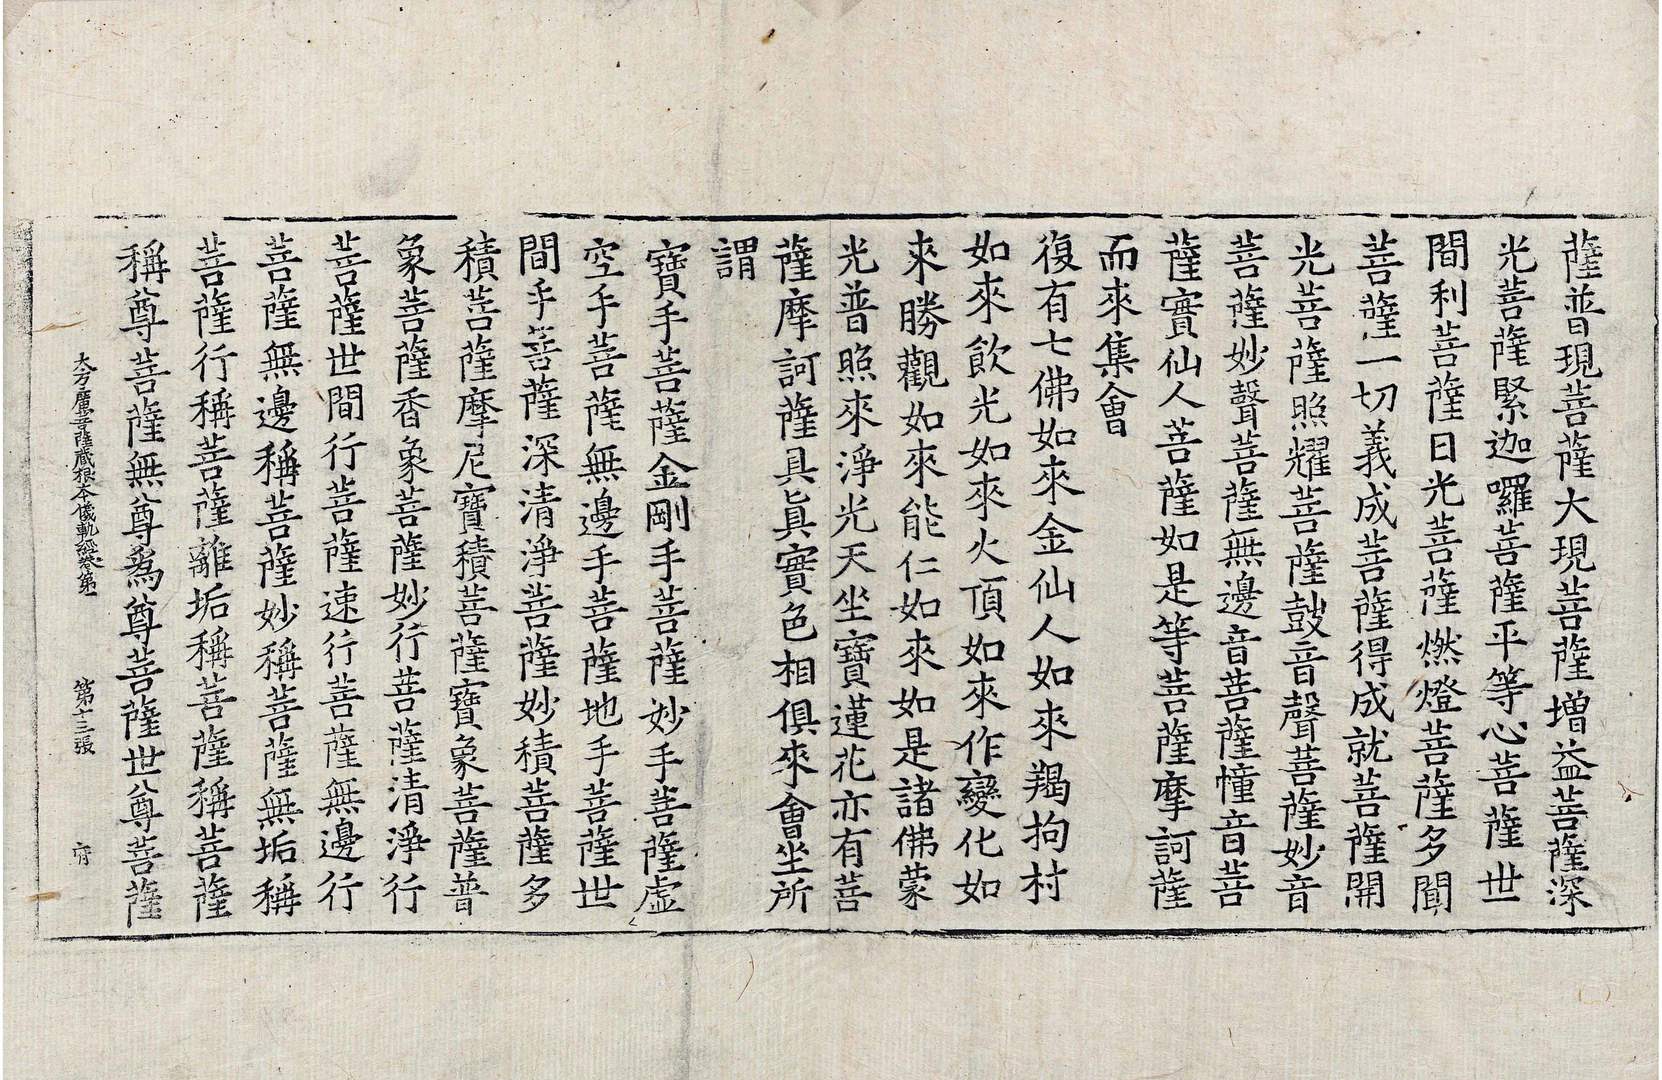 薩普現菩薩大現菩薩增益菩薩深
光菩薩緊迦囉菩薩平等心菩薩世
間利菩薩日光菩薩燃燈菩薩多聞
菩薩一切義成菩薩得成就菩薩開
光菩薩照耀菩薩鼓音聲菩薩妙音
菩薩妙聲菩薩無邊音菩薩幢音菩
薩實仙人菩薩如是等菩薩摩訶薩
而來集會
復有七佛如來金仙人如來羯拘村
如來飲光如來火頂如來作變化如
來勝觀如來能仁如來如是諸佛蒙
光普照來淨光天坐寶蓮花亦有菩
薩摩訶薩具眞實色相俱來會坐所
謂
寶手菩薩金剛手菩薩妙手菩薩虛
空手菩薩無邊手菩薩地手菩薩世
間手菩薩深清淨菩薩妙積菩薩多
積菩薩摩尼寶積菩薩寶象菩薩普
象菩薩香象菩薩妙行菩薩清淨行
菩薩世間行菩薩速行菩薩無邊行
菩薩無邊稱菩薩妙稱菩薩無垢稱
菩薩行稱菩薩離垢稱菩薩稱菩薩
稱尊菩薩無尊爲尊菩薩世尊菩薩
大方廣菩薩藏根本儀軌經卷第一 第十三張